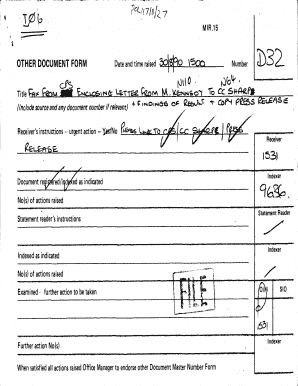 I06
MIR.15
OTHER DOCUMENT FORM Date and time raised 30/8/90 1500 Number D32
CPS N110 N64
Title FAX FROM ENCLOSING LETTER FROM M. KENNEDY TO CC SHARPE
(Include source and any document number if relevant) + FINDINGS OF RESULT + COPY PRESS RELEASE
Receiver's instructions – urgent action – Yes/No LINK TO CPS / CC SHARPE / PRESS
RELEASE
Receiver
1531
Indexer
Document registered/indexed as indicated
9686
No(s) of actions raised
Statement Reader
Statement reader's instructions
Indexer
Indexed as indicated
No(s) of actions raised
Examined – further action to be taken
SIO
FILE
1531
Indexer
Further action No(s)
When satisfied all actions raised Office Manager to endorse other Document Master Number Form